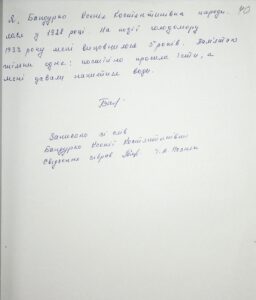 Я, Бандурко Ксенія Костянтинівна народи-
лася у 1928 році. На події голодомору
1933 року мені виповнилося 5 років. Пам'ятаю
тільки одне: постійно просила їсти, а
мені давали напитися води.
Записано зі слів
Бандурко Ксенії Костянтинівни
Свідчення зібрав